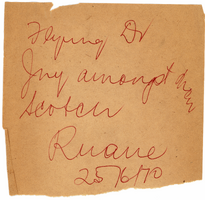 Flying Dr
Jny amongst
Scotch
Ruane
25/6/70